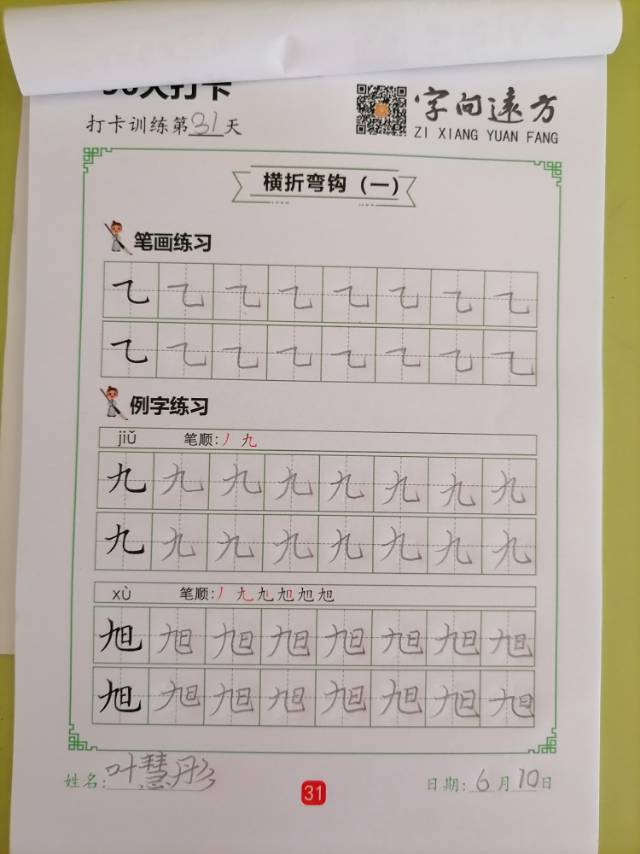 天打卡
打卡训练第31天
字向远方
ZI XIANG YUAN FANG
横折弯钩（一）
笔画练习
乙 乙 乙 乙 乙 乙 乙 乙
乙 乙 乙 乙 乙 乙 乙 乙
例字练习
jiǔ 笔顺：丿 九
九 九 九 九 九 九 九 九
九 九 九 九 九 九 九 九
xù 笔顺：丿 九
旭 旭 旭 旭 旭 旭 旭 旭
旭 旭 旭 旭 旭 旭 旭 旭
姓名：叶慧彤
31
日期：6月10日